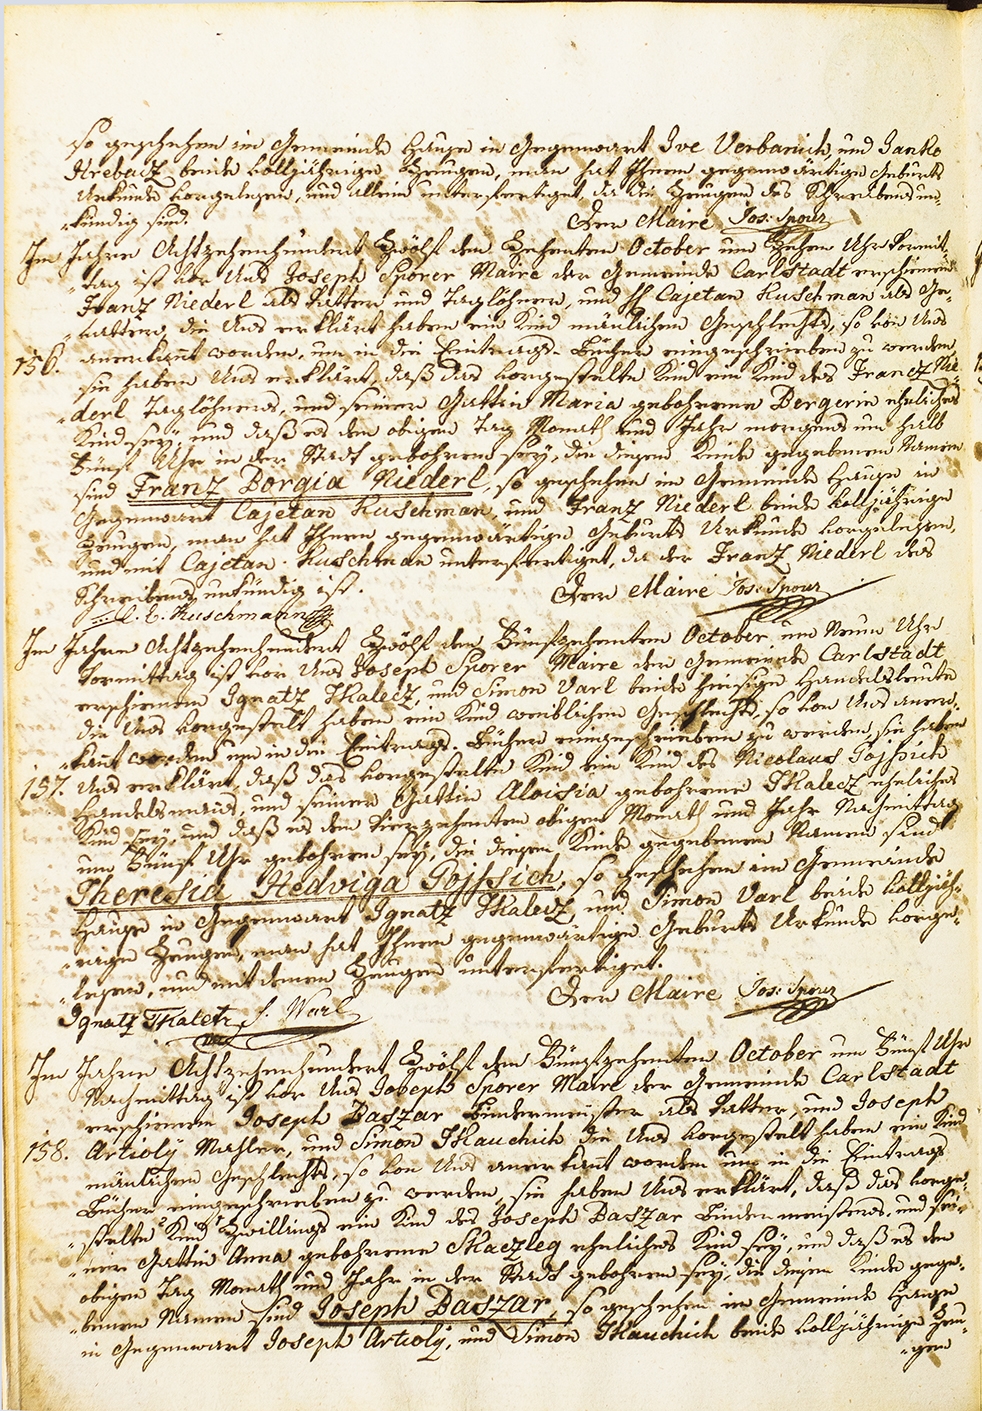 so geschehen im Gemeinde Hause in Gegenwart Ive Verbanich und Janko
Hrebacz beide volljährige Zeugen, man hat Ihnen gegenwärtige Geburts
Urkunde vorgelesen, und allein unterfertiget, da die Zeugen des Schreibens un„
„kündig sind. Der Maire Jos: Sporer
Im Jahre Achtzehenhundert Zwölf den Zehenten October um Zehen Uhr Vormit„
„tag ist vor Uns Joseph Sporer Maire der Gemeinde Carlstadt erschienen
Franz Niederl als Vatter und Taglöhner, und H Cajetan Kuschman als Ge„
„vatter, die Uns erklärt haben ein Kind mänlichen Geschlechts, so von Uns
156. anerkant worden, um in die Eintrags-Bücher eingeschrieben zu werden,
sie haben Uns erklärt, daß das vorgestelte Kind ein Kind des Franz Nie„
„derl Taglöhners, und seiner Gattin Maria gebohrene Bergerin eheliches
Kind sey, und daß es den obigen Tag Monath und Jahr morgens um halb
Fünf Uhr in der Stadt gebohren sey, die diesem Kinde gegebenen Namen
sind Franz Borgia Niederl, so geschehen im Gemeinde Hause in
Gegenwart Cajetan Kuschman, und Franz Niederl beide volljährige
Zeugen, man hat Ihnen gegenwärtige Geburts Urkunde vorgelesen,
und mit Cajetan Kuschman unterfertiget, da der Franz Niederl des
Schreibens unkündig ist. Der Maire Jos: Sporer
Kuschmann
Im Jahre Achtzehenhundert Zwölf den Fünfzehenten October um Neun Uhr
Vormittag ist vor Uns Joseph Sporer Maire der Gemeinde Carlstadt
erschienen Ignatz Tkalecz, und Simon Varl beide hiesige Handelsleute
die Uns vorgestelt haben ein Kind weiblichen Geschlechts, so von Uns aner„
„kant worden um in die Eintrags-Bücher eingeschrieben zu werden, sie haben
157. Uns erklärt, daß das vorgestelte Kind ein Kind des Nicolaus Pojssich
Handelsmans, und seiner Gattin Aloisia gebohrene Tkalecz eheliches
Kind sey, und daß es den Vierzehenten obigen Monath und Jahr Nachmittag
um Fünf Uhr gebohren sey, die diesem Kinde gegebenen Namen sind
Theresia Hedviga Pojssich, so geschehen im Gemeinde
Hause in Gegenwart Ignatz Tkalecz und Simon Varl beide volljäh„
„rige Zeugen, man hat Ihnen gegenwärtige Geburts Urkunde vorge„
„lesen, und mit denen Zeugen unterfertiget.
Der Maire Jos: Sporer
Ignatz Tkaletz S. Warl
Im Jahre Achtzehenhundert Zwölf den Fünfzehenten October um Fünf Uhr
Nachmittag ist vor Uns Joseph Sporer Maire der Gemeinde Carlstadt
erschienen Joseph Baszar Bindermeister als Vatter, und Joseph
158. Artioly Mahler, und Simon Tkauchich die Uns vorgestelt haben ein Kind
mänlichen Geschlechts, so von Uns anerkant worden um in die Eintrags
Bücher eingeschrieben zu werden, sie haben Uns erklärt, daß das vorge„
„stelte Kind Zwillings ein Kind des Joseph Baszar Bindermeisters, und sei„
„ner Gattin Anna gebohrene Skaczleg eheliches Kind sey, und daß es den
obigen Tag Monath und Jahr in der Stadt gebohren sey, die diesem Kinde gege„
„benen Namen sind Joseph Baszar, so geschehen im Gemeinde Hause
in Gegenwart Joseph Artioly, und Simon Tkauchich beide volljährige Zeu„
„gen